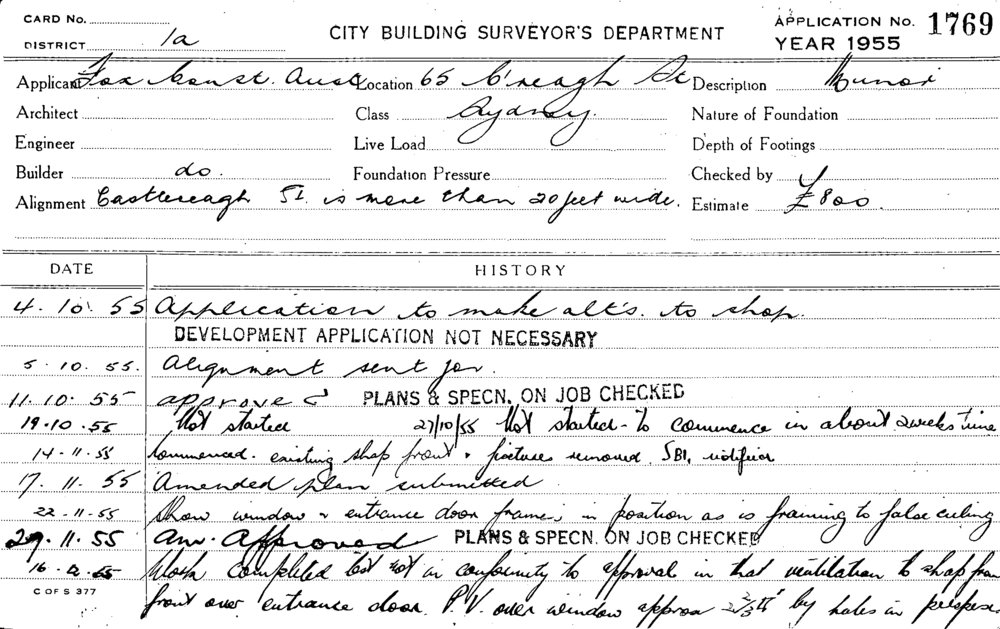 CARD No.
DISTRICT 1a
CITY BUILDING SURVEYOR'S DEPARTMENT
APPLICATION No. 1769
YEAR 1955
Applicant Fox Const. Aust Location 65 C'reagh St Description Minor
Architect Class Sydney. Nature of Foundation
Engineer Live Load Depth of Footings
Builder do. Foundation Pressure Checked by
Alignment Castlereagh St. is more than 20 feet wide. Estimate £800.
DATE HISTORY
4.10.55 Application to make alt's. to shop.
DEVELOPMENT APPLICATION NOT NECESSARY
5.10.55. Alignment sent for.
11.10.55 approved PLANS & SPECN. ON JOB CHECKED
19.10.55 Not started 27/10/55 Not started - to commence in about 2 weeks time
14.11.55 Commenced. existing shop front & fixtures removed. SBI. notified
17.11.55 Amended plan submitted
22.11.55 Show window & entrance door frames in position as is framing to false ceiling
29.11.55 am. Approved PLANS & SPECN. ON JOB CHECKED
16.2.55 Work completed but not in conformity to approval in that ventilation to shop from
C OF S 377
front over entrance door. P.V. over window approx by holes in